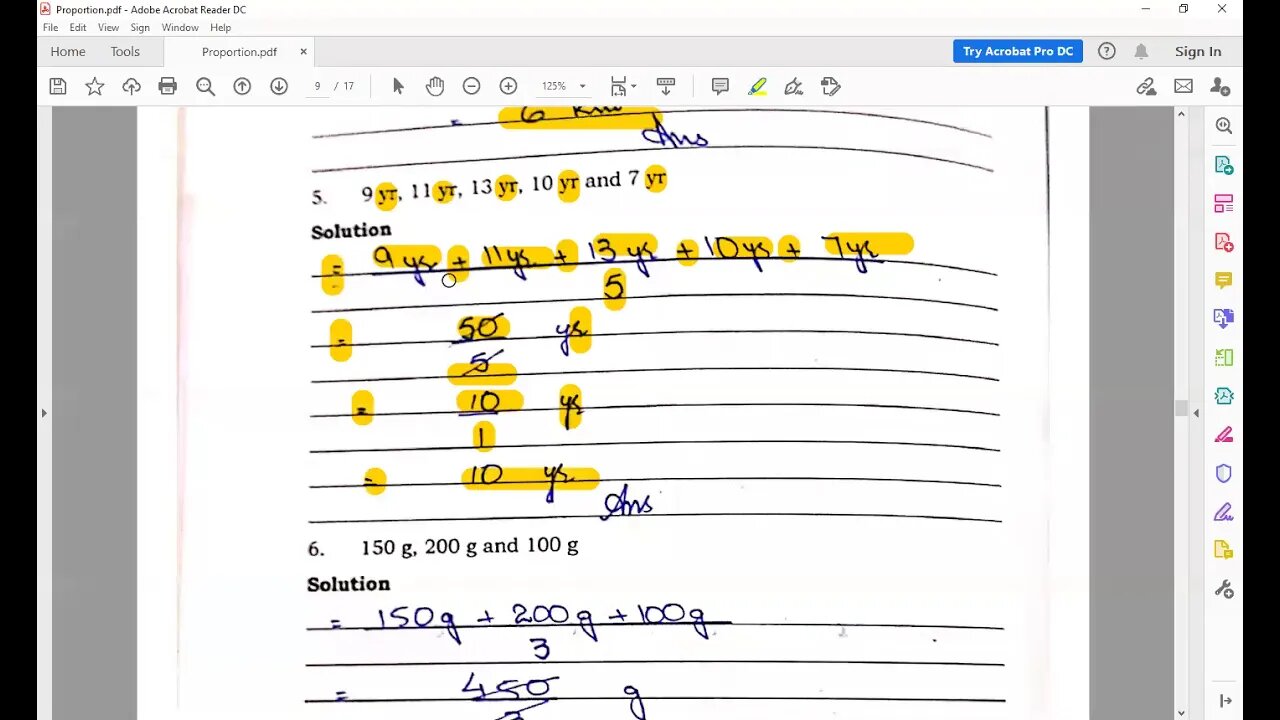 Proportion.pdf - Adobe Acrobat Reader DC
File Edit View Sign Window Help
Home Tools Proportion.pdf × Try Acrobat Pro DC Sign In
9 / 17 125%
= 6 km
Ans
5. 9 yr, 11 yr, 13 yr, 10 yr and 7 yr
Solution
= 9 yr + 11 yr + 13 yr + 10 yr + 7 yr
5
= 50 yr
5
= 10 yr
1
= 10 yr
Ans
6. 150 g, 200 g and 100 g
Solution
= 150g + 200g + 100g
3
= 450 g
3